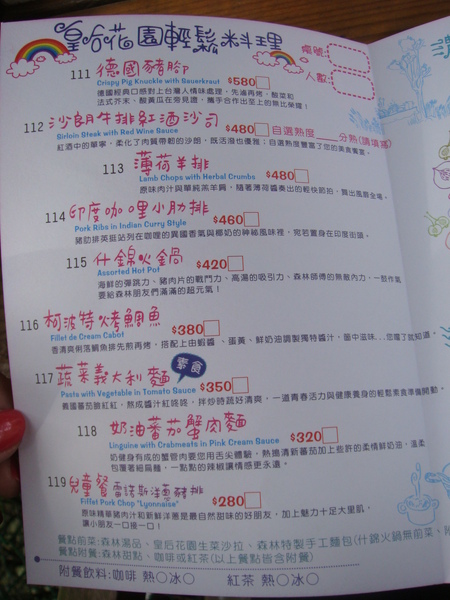 皇哈花園輕鬆料理
桌號:
人數:
111 德國豬腳
Crispy Pig Knuckle with Sauerkraut $580
德國經典口感對上台灣人情味處理，先滷再烤，酸菜和
法式芥末，酸黃瓜在旁見證，攜手合作出至上的無比榮耀！
112 沙朗牛排紅酒沙司
Birloin Steak with Red Wine Sauce $480 自選熟度____分熟(請填寫)
紅酒中的單寧，柔化了肉質帶輕的沙朗，既活潑也優雅；自選熟度豐富了您的美食饗宴。
113 薄荷羊排
Lamb Chops with Herbal Crumbs $480
原味肉汁與單純蒸羊鐲，隨著薄荷醬奏出的輕快節拍，算出風靡金章。
114 印度咖哩小肋排
Pork Ribs in Indian Curry Style $460
豬肋排英挺站列在咖哩的異國香氣與椰奶的神祕風味裡，宛若置身在印度街頭。
115 什錦火鍋
Assorted Hot Pot $420
海鮮的彈跳力、豬肉片的戰鬥力、高湯的吸引力、森林師傅的無敵內力，一鼓作氣
要給森林朋友們滿滿的超元氣！
116 柯波特火烤鯛魚
Fillet de Cream Cabot $380
香清爽俐落鯛魚排先煎再烤，搭配上由蝦醬、蛋黃、鮮奶油調製獨特醬汁，箇中滋味...您嚐了就知道。
117 蔬菜義大利麵 素食
Pasta with Vegetable in Tomato Sauce $350
養國蕃茄臉紅紅，熬成醬汁紅咚咚，拌炒時蔬好清爽，一道青春活力與健康養身的輕鬆素食準備開動。
118 奶油蕃茄蟹肉麵
Linguine with Crabmeats in Pink Cream Sauce $320
奶健身有成的蟹管肉要您用舌尖體驗，熱擔清新蕃茄加上些許的柔情鮮奶油，溫柔
包覆著細扁麵，一點點的辣椒讓情感更永遠。
119 兒童餐 雷諾斯洋蔥豬排
Fillet Pork Chop "Lyonnaise" $280
原味精華豬肉汁和新鮮洋蔥是最自然甜味的好朋友，加上魅力十足大里肌，
讓小朋友一口接一口！
餐點前菜:森林湯品、皇后花園生菜沙拉、森林特製手工麵包(什錦火鍋無前菜、附
餐點附餐:森林甜點、咖啡或紅茶(以上餐點皆含附餐)
附餐飲料:咖啡 熱○冰○ 紅茶 熱○冰○